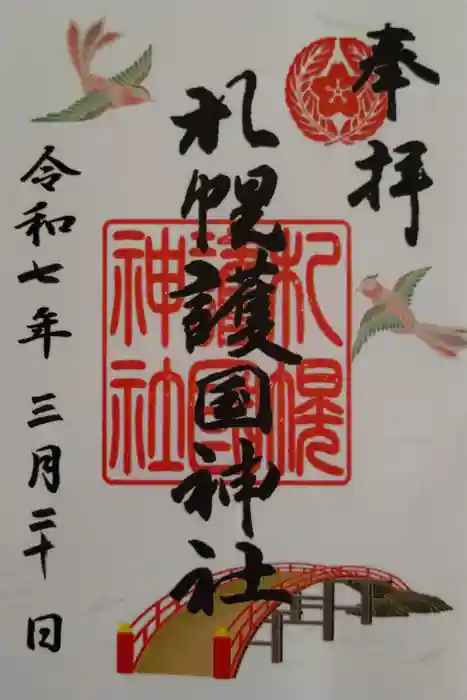 奉拝
札幌護国神社
札幌護国神社
令和七年 三月二十日